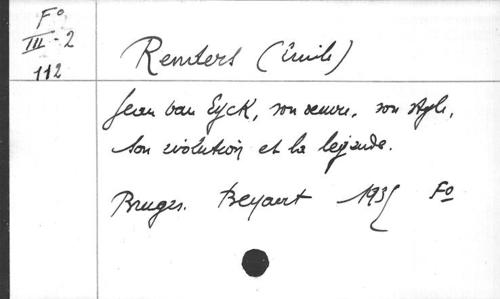 Fº
III-2
112
Renders (Émile)
Jean van Eyck, son œuvre, son style,
son évolution et la légende.
Bruges. Beyaert 1935 Fº